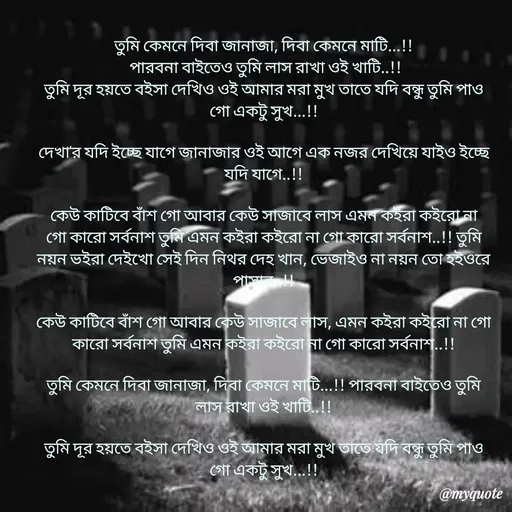 তুমি কেমনে দিবা জানাজা, দিবা কেমনে মাটি...!!
পারবনা বাইতেও তুমি লাস রাখা ওই খাটি..!!
তুমি দূর হয়তে বইসা দেখিও ওই আমার মরা মুখ তাতে যদি বন্ধু তুমি পাও
গো একটু সুখ...!!
দেখা'র যদি ইচ্ছে যাগে জানাজার ওই আগে এক নজর দেখিয়ে যাইও ইচ্ছে
যদি যাগে..!!
কেউ কাটিবে বাঁশ গো আবার কেউ সাজাবে লাস এমন কইরা কইরো না
গো কারো সর্বনাশ তুমি এমন কইরা কইরো না গো কারো সর্বনাশ..!! তুমি
নয়ন ভইরা দেইখো সেই দিন নিথর দেহ খান, ভেজাইও না নয়ন তো হইওরে
পাসান..!!
কেউ কাটিবে বাঁশ গো আবার কেউ সাজাবে লাস, এমন কইরা কইরো না গো
কারো সর্বনাশ তুমি এমন কইরা কইরো না গো কারো সর্বনাশ..!!
তুমি কেমনে দিবা জানাজা, দিবা কেমনে মাটি...!! পারবনা বাইতেও তুমি
লাস রাখা ওই খাটি..!!
তুমি দূর হয়তে বইসা দেখিও ওই আমার মরা মুখ তাতে যদি বন্ধু তুমি পাও
গো একটু সুখ...!!
@myquote